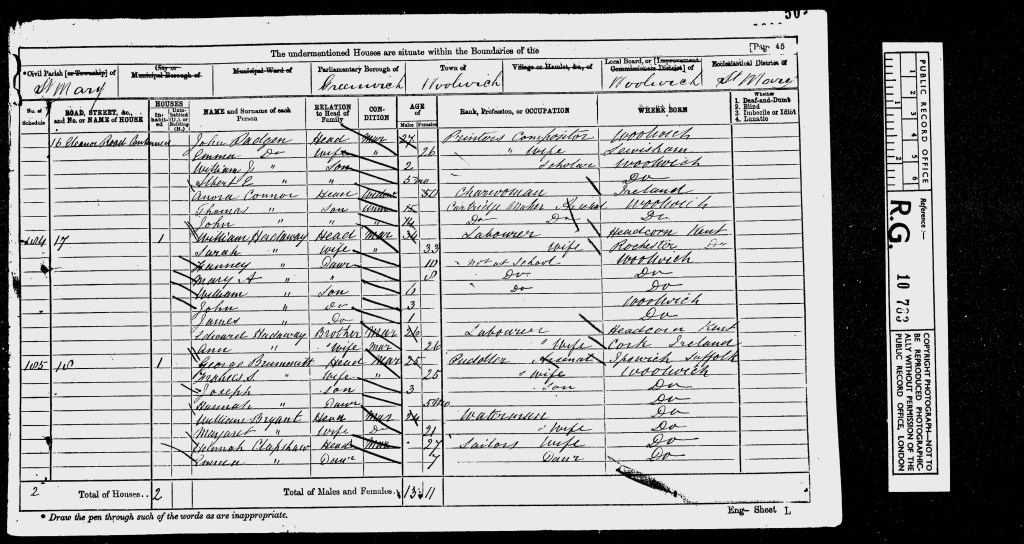 50
[Page 45
The undermentioned Houses are situate within the Boundaries of the
Civil Parish [or Township] of
City or Municipal Borough of
Municipal Ward of
Parliamentary Borough of
Town of
Village or Hamlet, &c., of
Local Board, or [Improvement Commissioners District] of
Ecclesiastical District of
St Mary Greenwich Woolwich Woolwich St Mary
No. of Schedule
ROAD, STREET, &c., and No. or NAME of HOUSE
HOUSES
Inhabited
Uninhabited (U.), or Building (B.)
NAME and Surname of each Person
RELATION to Head of Family
CONDITION
AGE of
Males Females
Rank, Profession, or OCCUPATION
WHERE BORN
Whether
1. Deaf-and-Dumb
2. Blind
3. Imbecile or Idiot
4. Lunatic
16 Eleanor Road Continued John Head Mar 27 Printers Compositor Woolwich
Emma Do Wife " 26 " Wife Lewisham
William J. " Son 2 Scholar Woolwich
Albert E " " 5 mo Do
Connor Head Widow 50 Charwoman Ireland
Thomas " Son Unm 15 Cartridge Maker Arsenal Woolwich
John " " " 14 Do Do Do
1104 17 1 William Hadaway Head Mar 34 Labourer Headcorn Kent
Sarah " Wife " 33 Wife Rochester Do
" Dawr 10 " not at School Woolwich
Mary A " " 8 " Do Do
William " Son 6 " Do Do
John " Do 3 Woolwich
James " Do 1 Do
Edward Hadaway Brother Mar 26 Labourer Headcorn Kent
Ann " " Wife Mar 26 " Wife Cork Ireland
1105 18 1 George Head Mar 25 Pudler Arsenal Ipswich Suffolk
S. " Wife " 25 " Wife Woolwich
Joseph " Son 3 " Son Do
Hannah " Dawr 5 mo Do
William Bryant Head Mar 24 Waterman Do
Margaret " Wife Do 21 " Wife Do
Hannah Clapshaw Head Mar 27 Sailors Wife Do
Emma " Dawr 7 Dawr Do
2 Total of Houses.. 2 Total of Males and Females.. 13 11
* Draw the pen through such of the words as are inappropriate.
Eng— Sheet L
PUBLIC RECORD OFFICE
1 2 3 4 5 6
1 2
Reference :-
R.G. 10 783
COPYRIGHT PHOTOGRAPH—NOT TO
BE REPRODUCED PHOTOGRAPHIC-
ALLY WITHOUT PERMISSION OF THE
PUBLIC RECORD OFFICE, LONDON